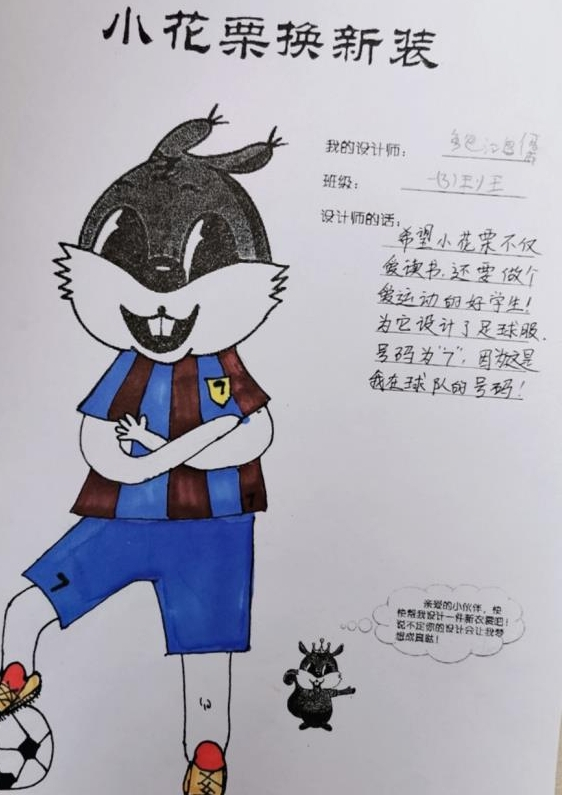 小花栗换新装
我的设计师：
班级： 一(3)班
设计师的话：
希望小花栗不仅
爱读书,还要做个
爱运动的好学生!
为它设计了足球服.
号码为"7",因为这是
我在球队的号码!
7
7
7
亲爱的小伙伴，快
快帮我设计一件新衣裳吧！
说不定你的设计会让我梦
想成真哒！